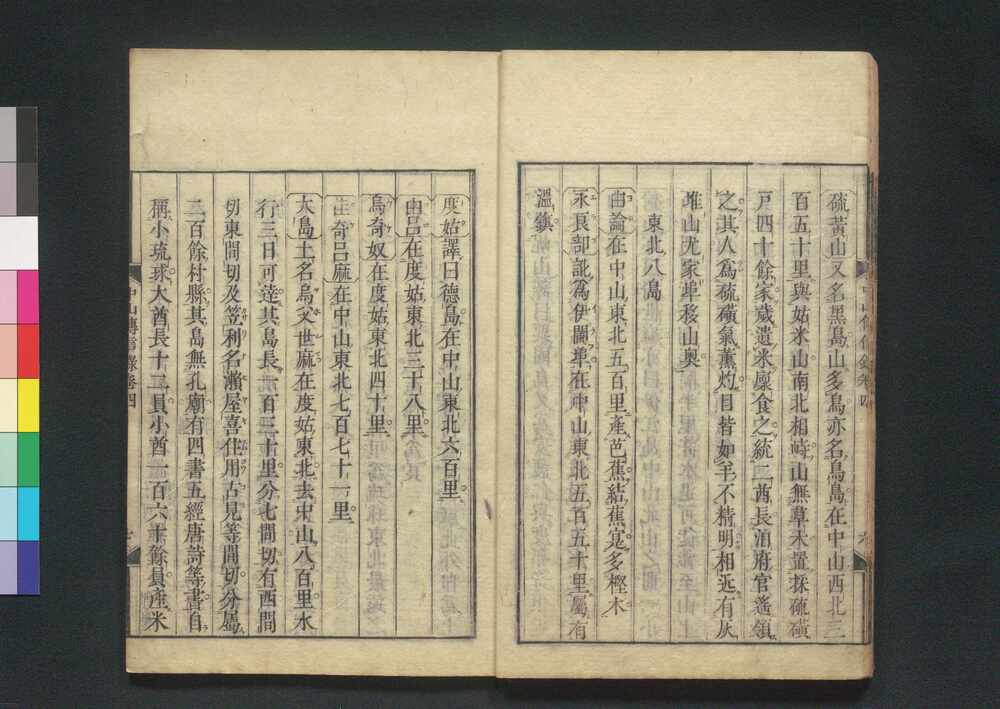 硫黃山又名黑島山多鳥亦名鳥島在中山西北三
百五十里與姑米山南北相峙山無草木置採硫磺
戸四十餘家歲遣米廩食之統二酋長泊府官遙領
之其人爲硫磺氣薰灼目皆如羊不精明相近有灰
堆山尤家埠移山奧
東北八島
由論在中山東北五百里產芭蕉結蕉寔多樫木
永良部訛爲伊闌埠在中山東北五百五十里屬有
溫鎮
度姑譯曰德島在中山東北六百里
由呂在度姑東北三十八里
烏奇奴在度姑東北四十里
佳奇呂麻在中山東北七百七十一里
大島土名烏父世麻在度姑東北去中山八百里水
行三日可達其島長百三十里分七間切有西間
切東間切及笠利名瀨屋喜住用古見等間切分屬
二百餘村縣其島無孔廟有四書五經唐詩等書自
稱小琉球大酋長十二員小酋一百六十餘員產米
中山傳信錄卷四